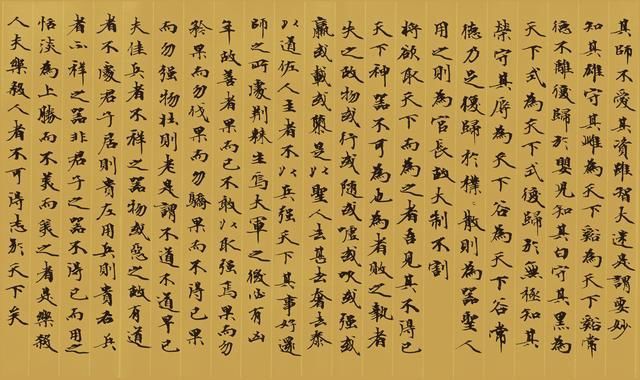 其師不愛其資雖智大迷是謂要妙
知其雄守其雌為天下谿為天下谿常
德不離復歸於嬰兒知其白守其黑為
天下式為天下式復歸於無極知其
榮守其辱為天下谷為天下谷常
德乃足復歸於樸〻散則為器聖人
用之則為官長故大制不割
將欲取天下而為之者吾見其不得已
天下神器不可為也為者敗之執者
失之故物或行或隨或噓或吹或強或
羸或載或隳是以聖人去甚去奢去泰
以道佐人主者不以兵強天下其事好還
師之所處荊棘生焉大軍之後必有凶
年故善者果而已不敢以取強焉果而勿
矜果而勿伐果而勿驕果而不得已果
而勿強物壯則老是謂不道不道早已
夫佳兵者不祥之器物或惡之故有道
者不處君子居則貴左用兵則貴右兵
者不祥之器非君子之器不得已而用之
恬淡為上勝而不美而美之者是樂殺
人夫樂殺人者不可得志於天下矣